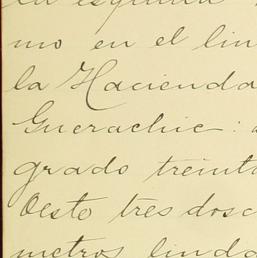 la esquina
mo en el lin
la Hacienda
Guerachic:
grado treint
Oeste tres dosc
metros linda